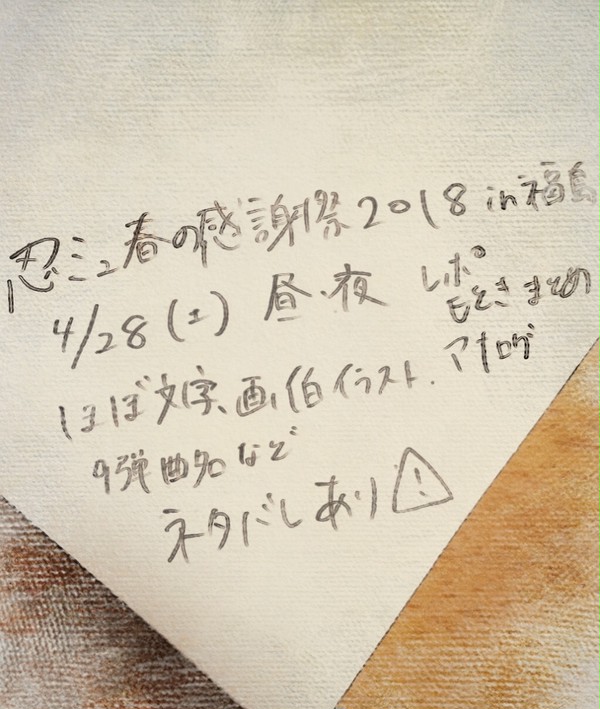 忍ミュ春の感謝祭2018 in 福島
4/28(土) 昼・夜 レポもどきまとめ
ほぼ文字、画伯イラスト、アナログ
9弾曲名など
ネタバレあり⚠